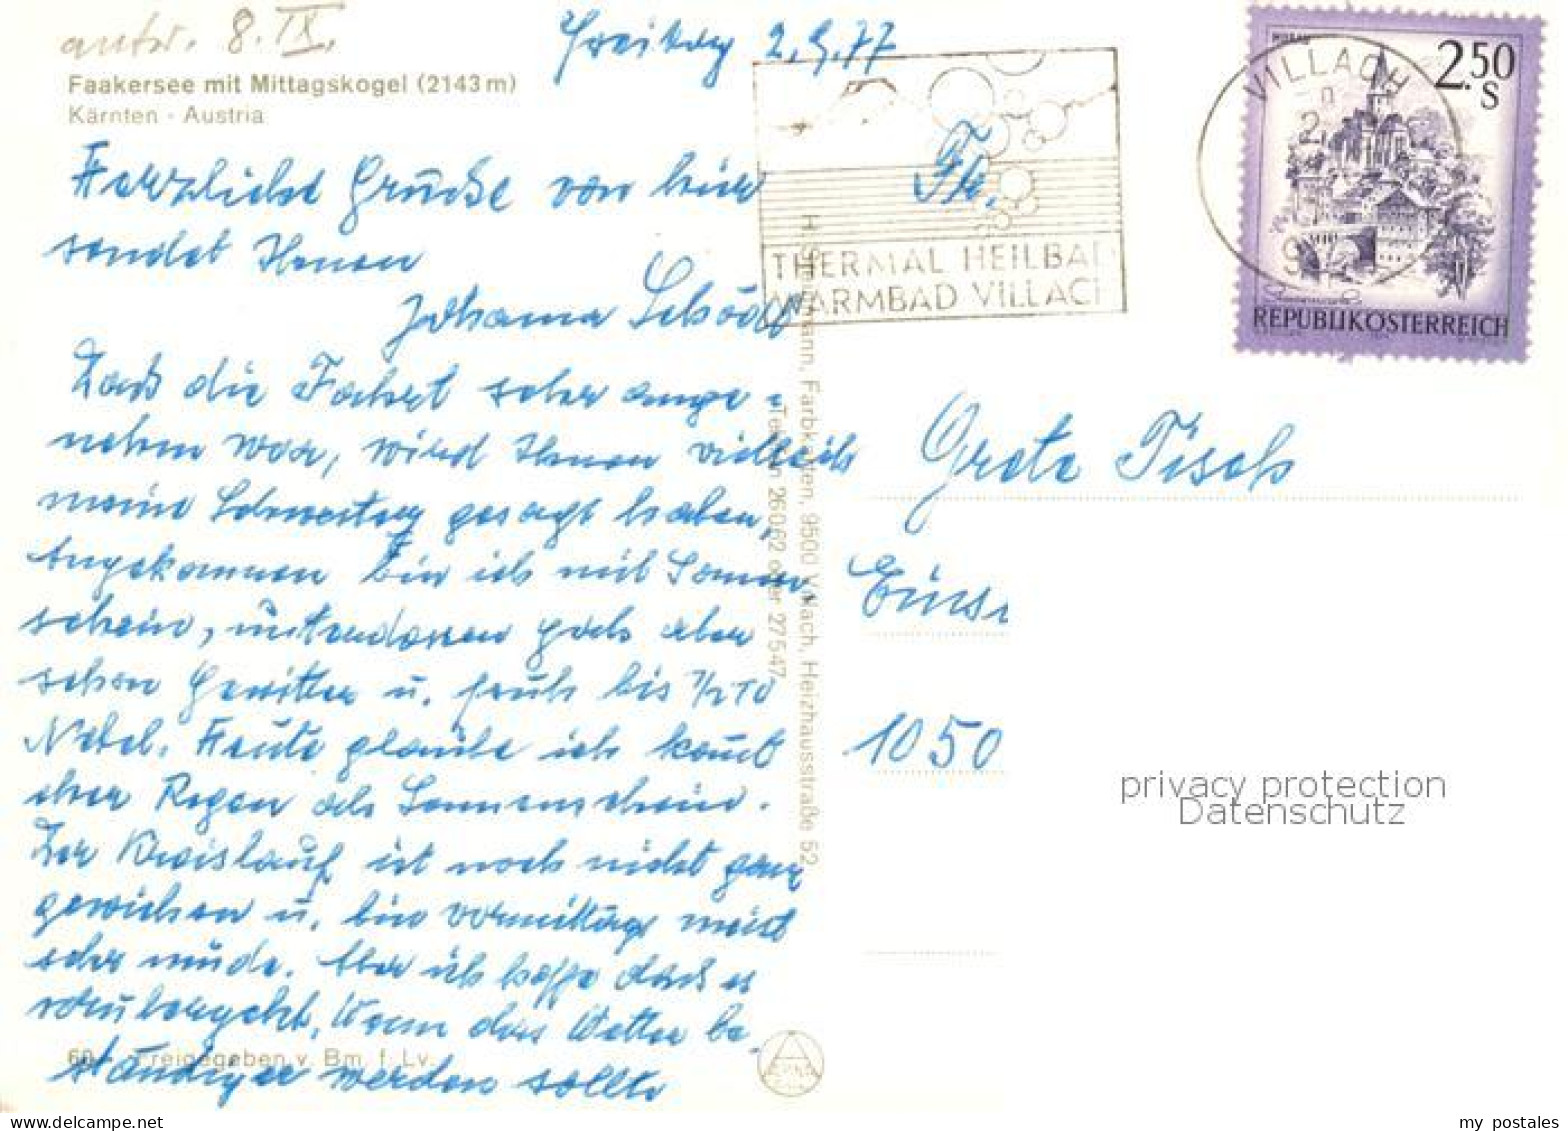 antw. 8. IX.
Freitag 2.9.77
Faakersee mit Mittagskogel (2143 m)
Kärnten - Austria
Herzliche Grüße von hier
sendet Ihnen
Johanna
Daß die Fahrt sehr ange=
nehm war, wird Ihnen vielleich
meine Schwester gesagt haben,
Angekommen bin ich mit Sonnen
schein, unterdessen gab aber
schon Gewitter u. früh bis 1/2 10
Nebel. Heute glaube ich kommt
eher Regen als Sonnenschein.
Der Kreislauf ist noch nicht ganz
gewichen u. bin vormittags meist
sehr müde. Aber ich hoffe daß es
vorübergeht, Wenn das Wetter be-
ständiger werden sollte
Freigegeben v. Bm. f. Lv.
mann, Farbkarten, 9500 Villach, Heizhausstraße 52
Telefon 26062 oder 27547
THERMAL HEILBAD
WARMBAD VILLACH
VILLACH
2.50
S
REPUBLIK ÖSTERREICH
Fr.
Grete Tisch
Eins
1050
privacy protection
Datenschutz
my postales